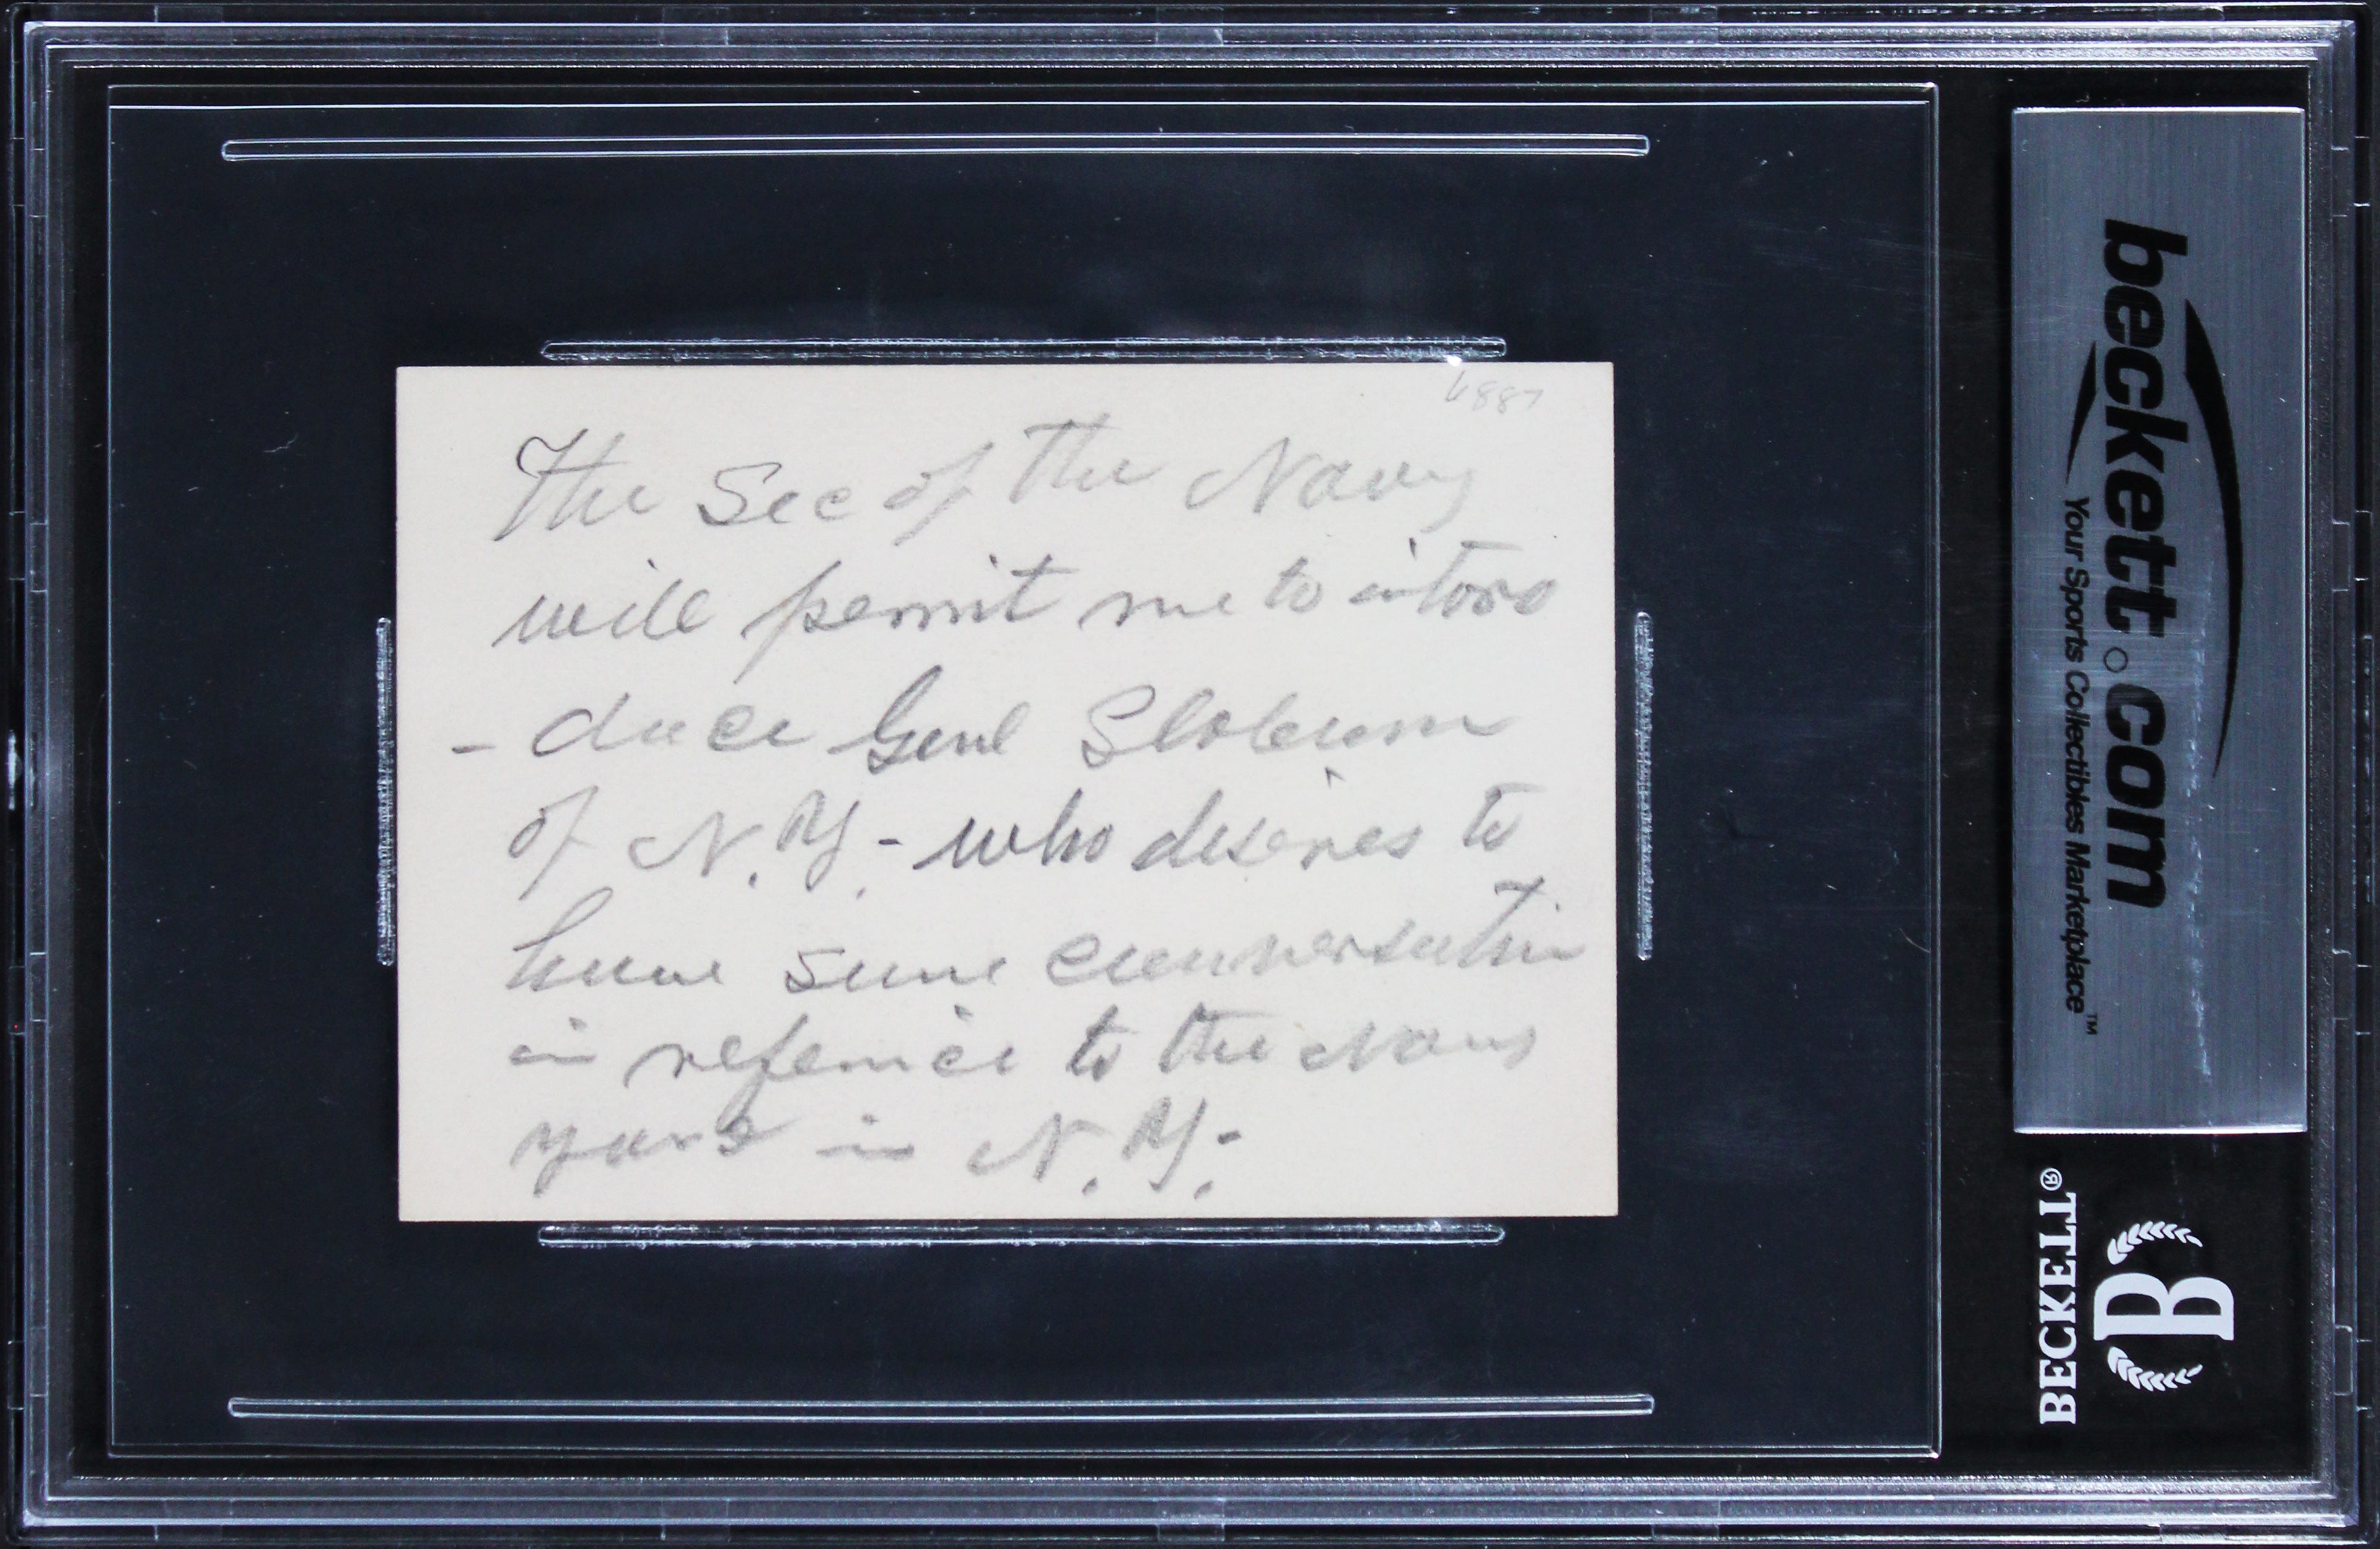 6887
The Sec of the Navy
will permit me to intro
- duce Genl Slocum
of N.Y. - who desires to
have some conversation
in reference to the Navy
yard in N.Y. -
beckett.com
Your Sports Collectibles Marketplace™
BECKETT®
B